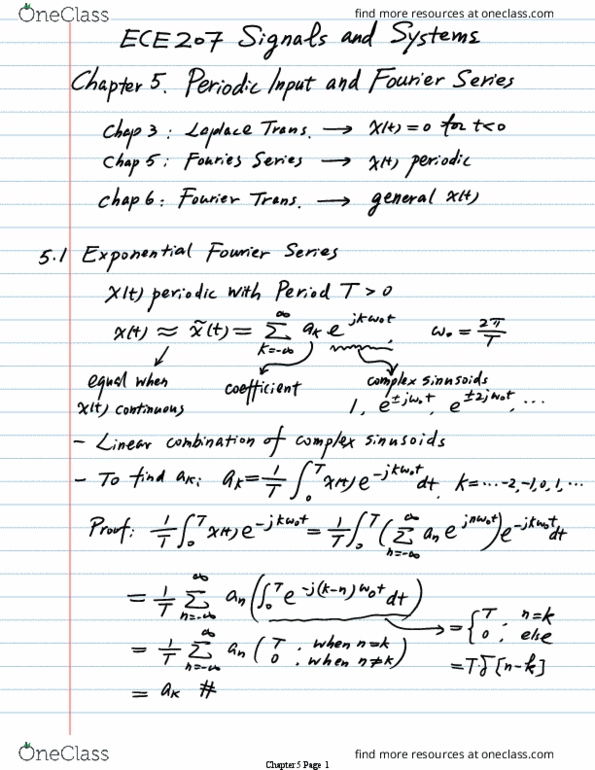 OneClass
find more resources at oneclass.com
ECE207 Signals and Systems
Chapter 5. Periodic Input and Fourier Series
Chap 3 : Laplace Trans. → x(t) = 0 for t<0
Chap 5 : Fouries Series → x(t) periodic
Chap 6 : Fourier Trans. → general x(t)
5.1 Exponential Fourier Series
x(t) periodic with Period T > 0
x(t) ≈ x̃(t) = ∑_{k=-∞}^{∞} a_k e^{jkω₀t}, ω₀ = 2π/T
equal when coefficient complex sinusoids
x(t) continuous 1, e^{±jω₀t}, e^{±2jω₀t}, ...
- Linear combination of complex sinusoids
- To find a_k: a_k = 1/T ∫₀^T x(t) e^{-jkω₀t} dt, k = ... -2, -1, 0, 1, ...
Proof: 1/T ∫₀^T x(t) e^{-jkω₀t} = 1/T ∫₀^T (∑_{n=-∞}^{∞} a_n e^{jnω₀t}) e^{-jkω₀t} dt
= 1/T ∑_{n=-∞}^{∞} a_n (∫₀^T e^{-j(k-n)ω₀t} dt) → = { T , n=k
0 ; else
= 1/T ∑_{n=-∞}^{∞} a_n ( T ; when n=k
0 ; when n≠k ) = T·δ[n-k]
= a_k #
OneClass
find more resources at oneclass.com
Chapter 5 Page 1